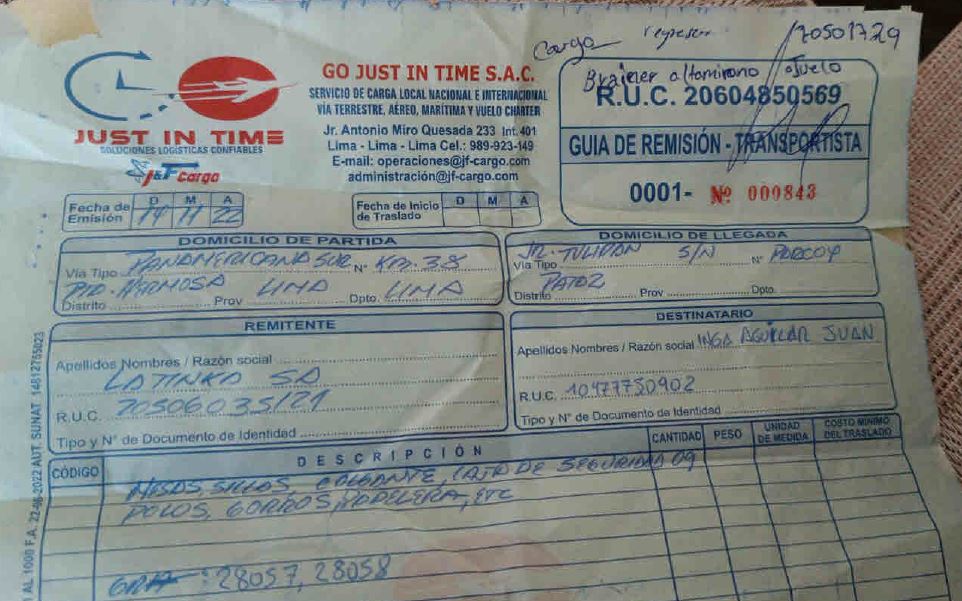 Cargo
70501729
Brainer altamirano
JUST IN TIME
SOLUCIONES LOGÍSTICAS CONFIABLES
J&F Cargo
GO JUST IN TIME S.A.C.
SERVICIO DE CARGA LOCAL NACIONAL E INTERNACIONAL
VÍA TERRESTRE, AÉREO, MARÍTIMA Y VUELO CHARTER
Jr. Antonio Miro Quesada 233 Int. 401
Lima - Lima - Lima Cel.: 989-923-149
E-mail: operaciones@jf-cargo.com
administración@jf-cargo.com
R.U.C. 20604850569
GUIA DE REMISIÓN - TRANSPORTISTA
0001- Nº 000843
Fecha de Emisión D M A
14 11 22
Fecha de Inicio de Traslado D M A
DOMICILIO DE PARTIDA
Vía Tipo PANAMERICANA SUR N° KM. 38
PTO. HERMOSA LIMA LIMA
Distrito Prov Dpto.
DOMICILIO DE LLEGADA
JR. TULIPAN S/N PARCOY
Vía Tipo N°
PATAZ
Distrito Prov Dpto.
REMITENTE
Apellidos Nombres / Razón social
LA TINKA SA
R.U.C. 20506035121
Tipo y N° de Documento de Identidad
DESTINATARIO
Apellidos Nombres / Razón social INGA AGUILAR JUAN
R.U.C. 10477730902
Tipo y N° de Documento de Identidad
CÓDIGO DESCRIPCIÓN CANTIDAD PESO UNIDAD DE MEDIDA COSTO MÍNIMO DEL TRASLADO
MESAS, SILLAS, COLGANTE, CAJA DE SEGURIDAD 09
POLOS, GORROS, PAPELERA, ETC
: 28057, 28058
AL 1000 F.A. 22-06-2022 AUT. SUNAT 14812755023